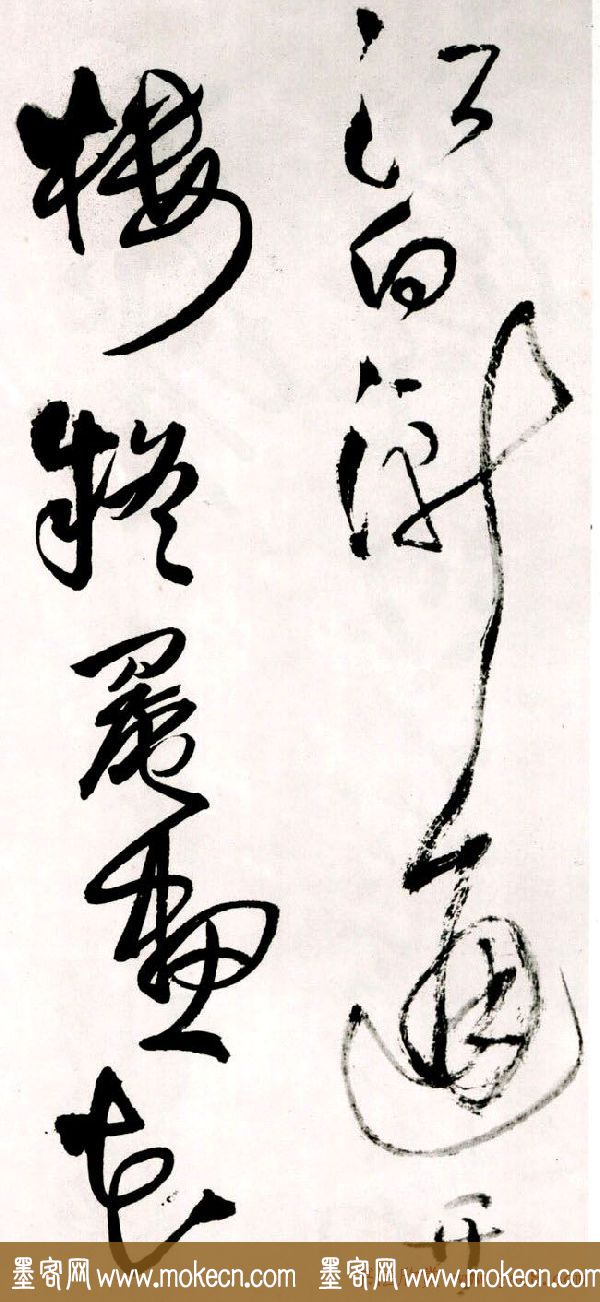 江白漸通
樓疑罨畫
墨客网 www.mokecn.com 墨客网 www.mokecn.com